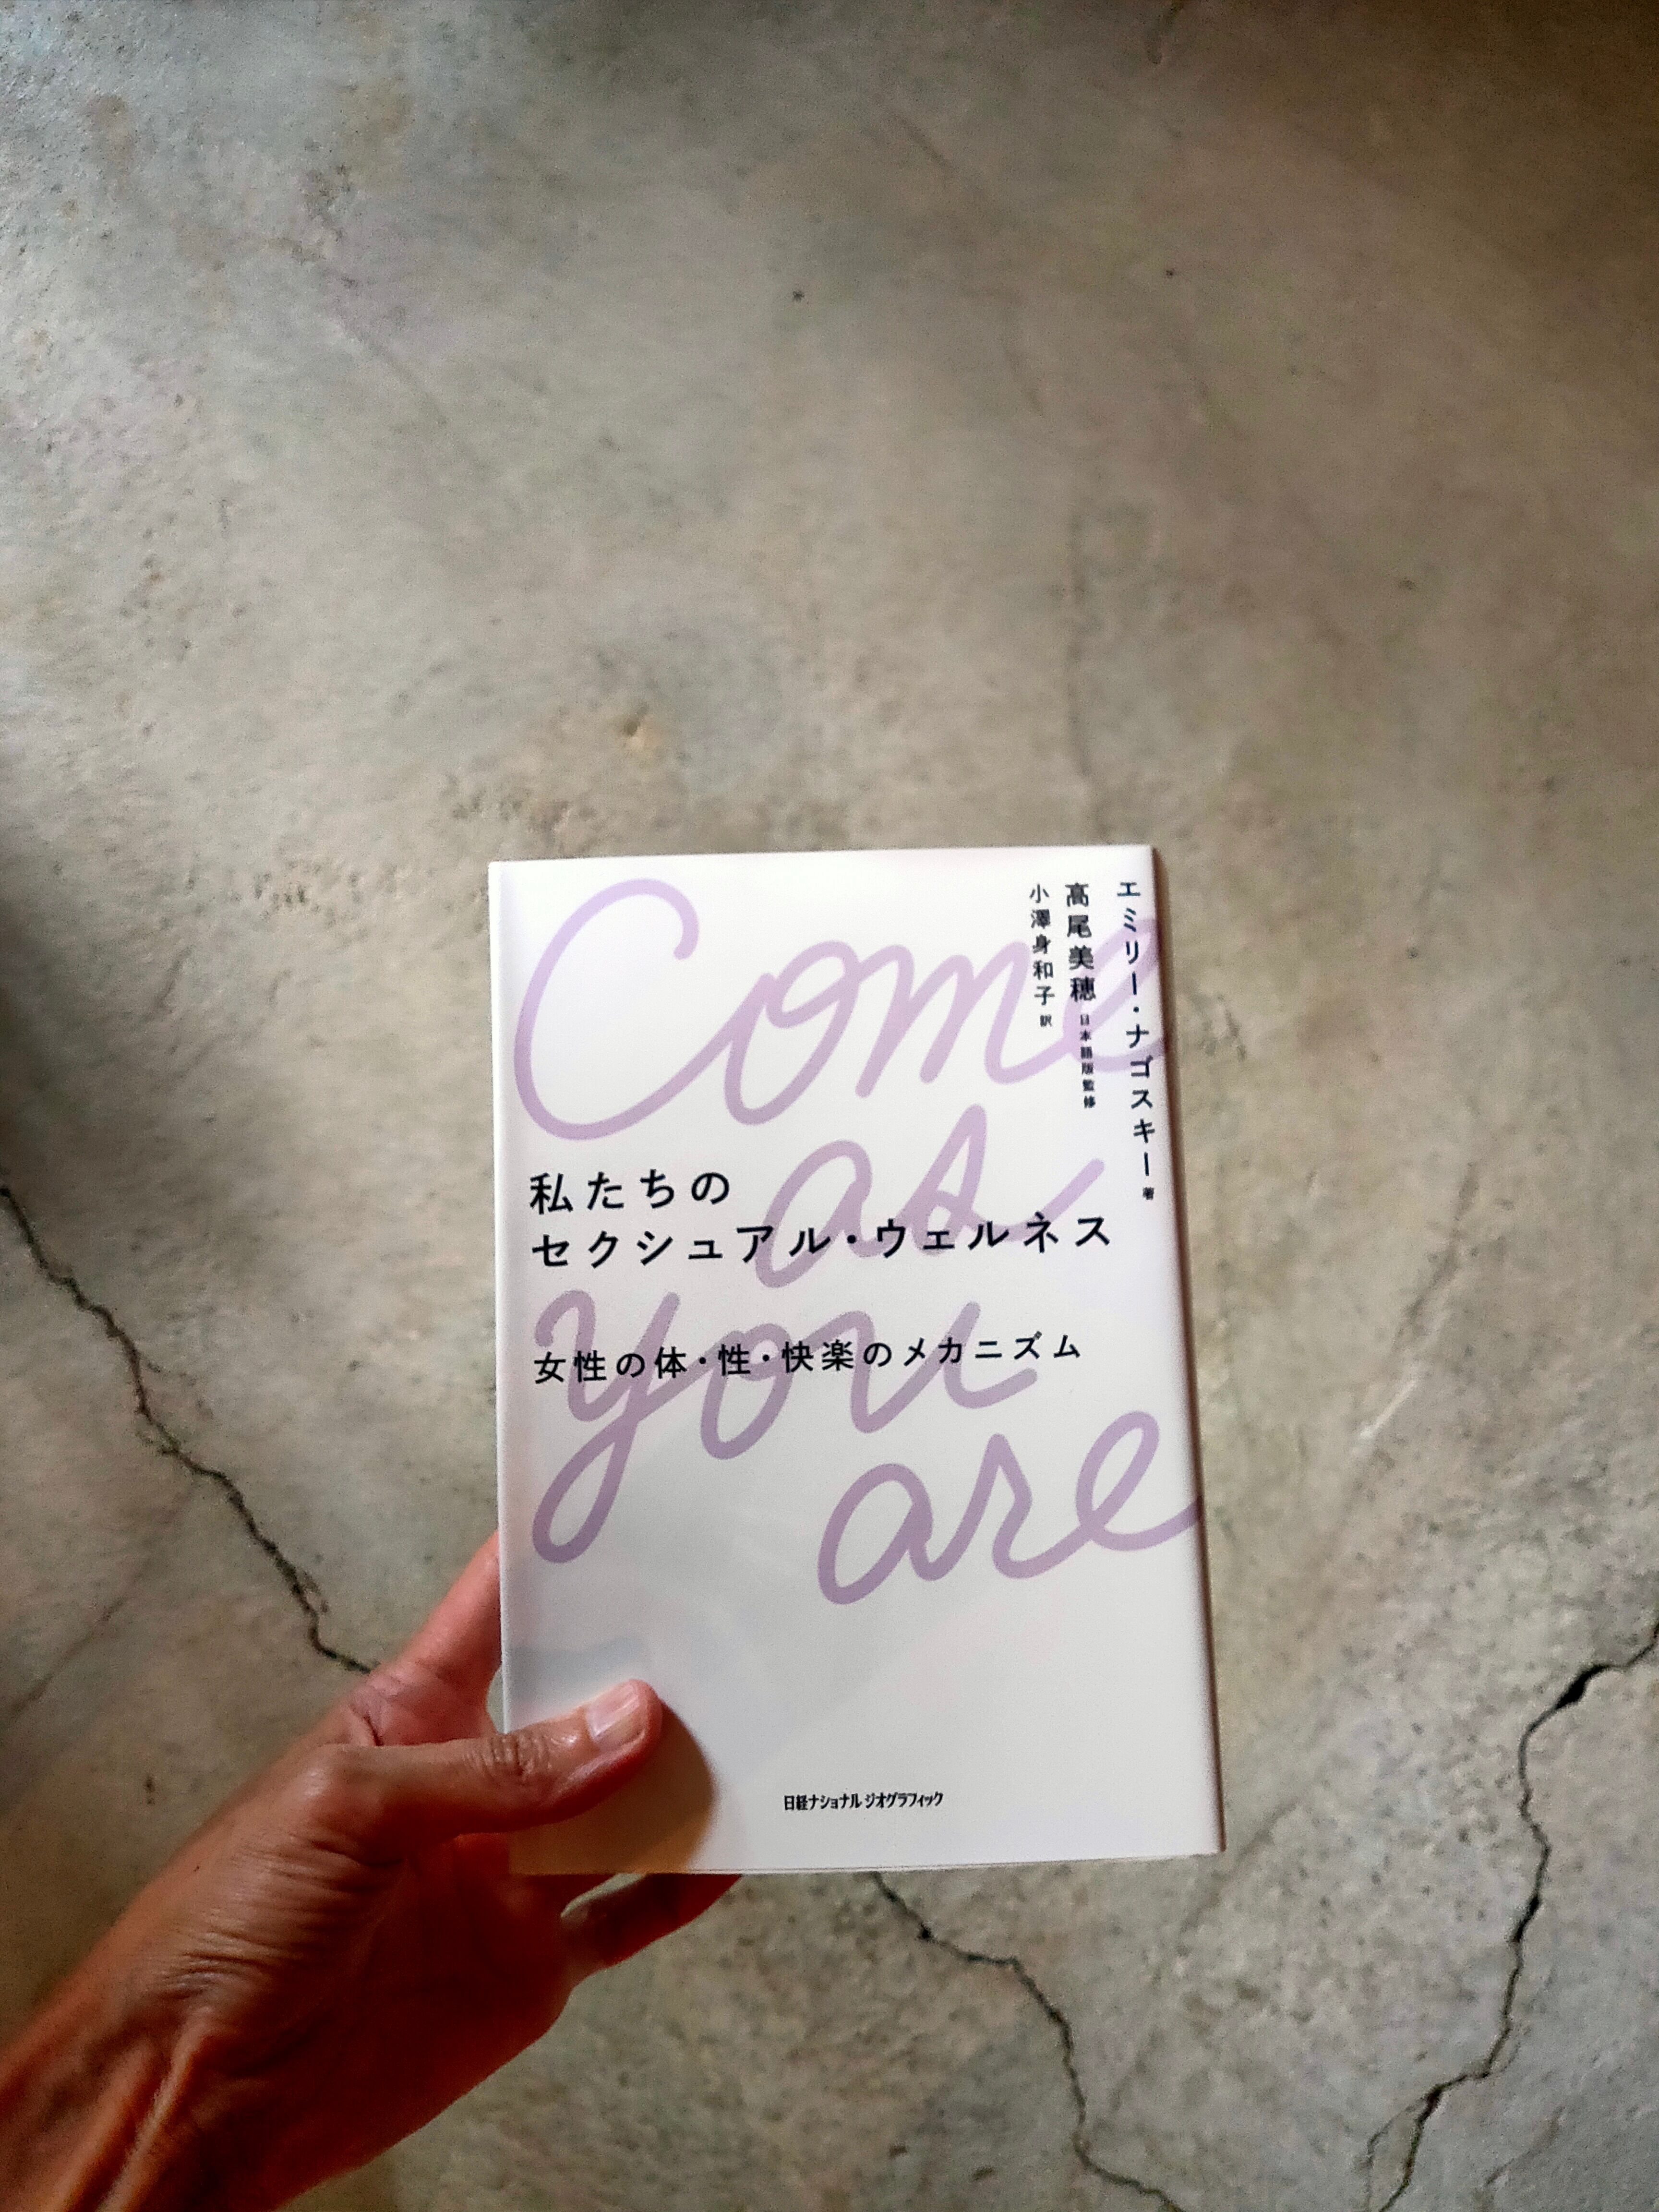 エミリー・ナゴスキー 著
高尾美穂 日本語版監修
小澤身和子 訳
Come
as
you
are
私たちの
セクシュアル・ウェルネス
女性の体・性・快楽のメカニズム
日経ナショナル ジオグラフィック